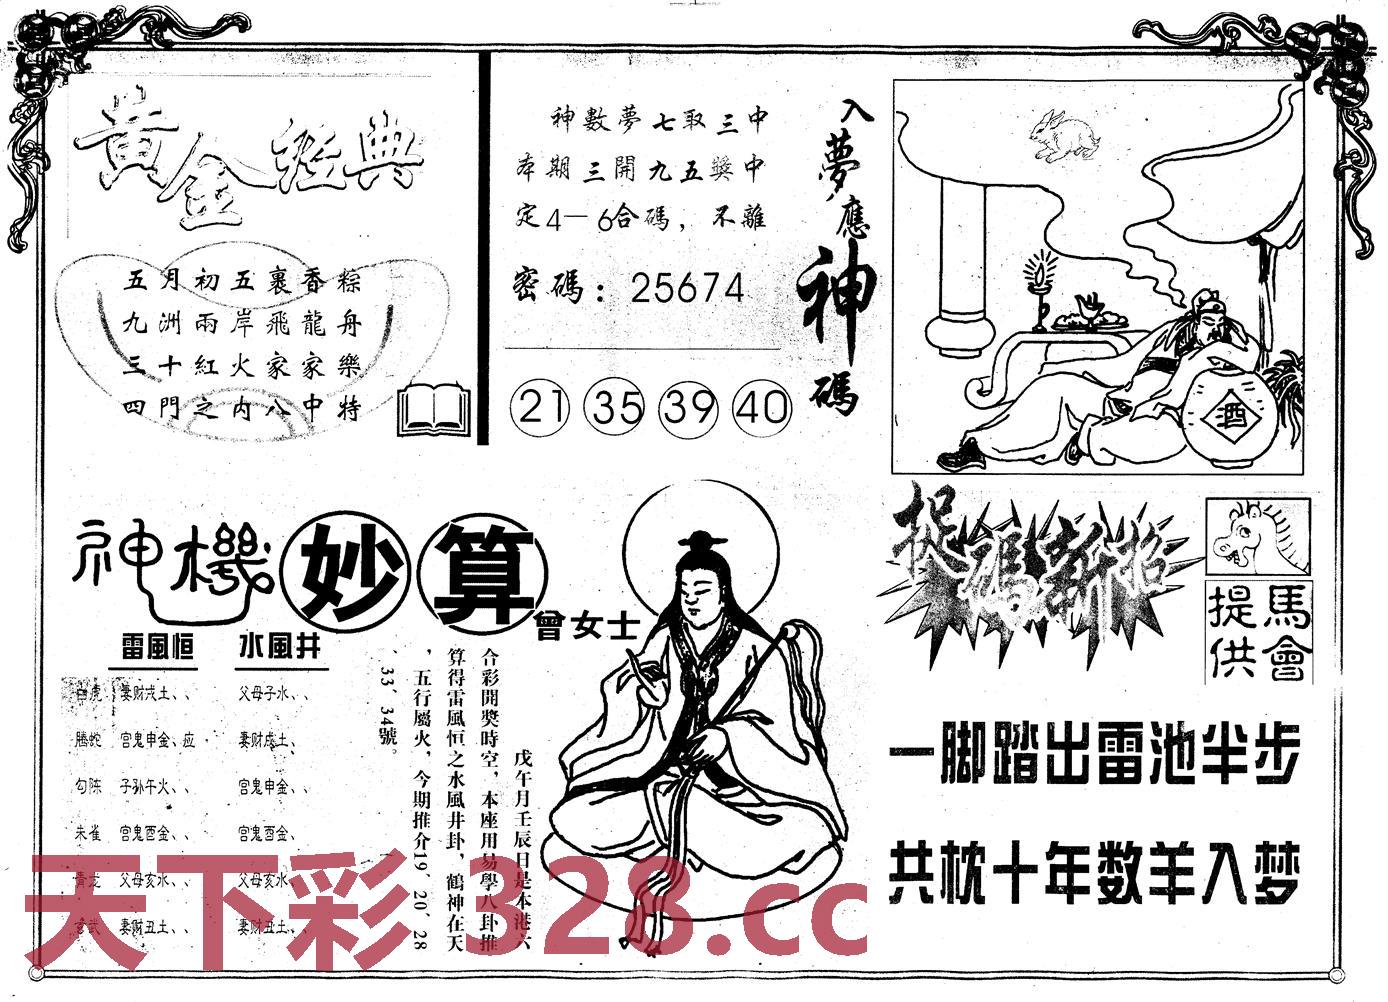 黄金經典
五月初五裹香粽
九洲兩岸飛龍舟
三十紅火家家樂
四門之内八中特
神數夢七取三中
本期三開九五獎中
定4—6合碼，不離
密碼：25674
21 35 39 40
入夢應神碼
酒
神機妙算
曾女士
雷風恒 水風井
白虎 妻财戌土、、 父母子水、、
螣蛇 宫鬼申金、应 妻财戌土、
勾陈 子孙午火、、 宫鬼申金、、
朱雀 宫鬼酉金、、 宫鬼酉金、
青龙 父母亥水、、 父母亥水、
玄武 妻财丑土、、 妻财丑土、、
戊午月壬辰日是本港六
合彩開獎時空，本座用易學八卦推
算得雷風恒之水風井卦，鶴神在天
，五行屬火，今期推介19、20、28
、33、34號。
捉碼新招
馬會
提供
一脚踏出雷池半步
共枕十年数羊入梦
天下彩 328.cc